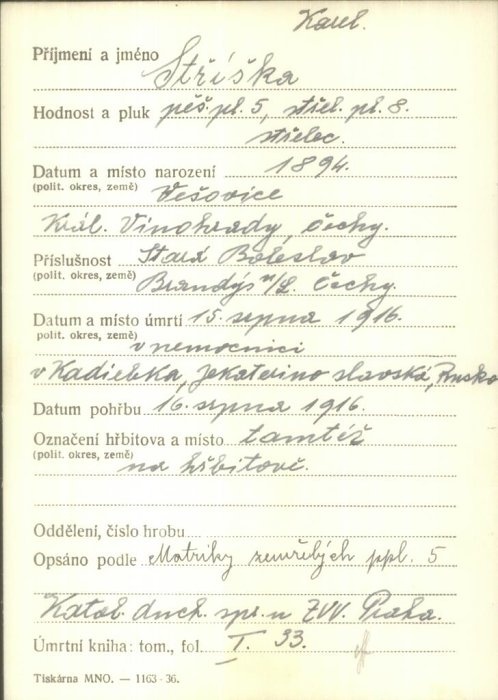 Karel.
Příjmení a jméno Stříška
Hodnost a pluk pěš. pl. 5, střel. pl. 8.
střelec.
Datum a místo narození 1894.
(polit. okres, země) Věšovice
Král. Vinohrady, Čechy.
Příslušnost Stará Boleslav
(polit. okres, země) Brandýs n/L. Čechy.
Datum a místo úmrtí 15. srpna 1916.
(polit. okres, země) v nemocnici
v Kadievka, Jekaterinoslavská, Rusko
Datum pohřbu 16. srpna 1916.
Označení hřbitova a místo tamtéž
(polit. okres, země) na hřbitově.
Oddělení, číslo hrobu
Opsáno podle Matriky zemřelých ppl. 5
Katol. duch. spr. u ZVV. Praha.
Úmrtní kniha: tom., fol. I. 33.
Tiskárna MNO. — 1163-36.